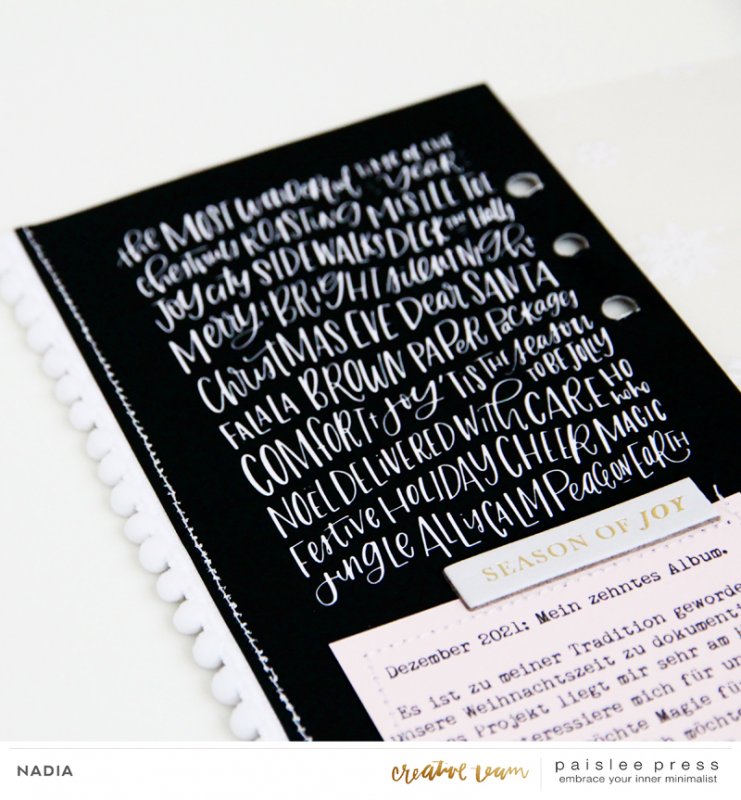 the MOST wonderful time of the year
chestnuts ROASTING MISTLE TOE
JOY city SIDEWALKS DECK the Halls
Merry + BRIGHT silent NIGHt
ChristMAS EVE Dear SANTA
FALALA BROWN PAPER Packages
COMFORT + JOY 'TIS THE SEASON TO BE JOLLY
NOËL DELIVERED WITH CARE HO HOHO
Festive HOLIDAY CHEER MAGIC
jingle ALL is CALM Peace ON EARTH
SEASON OF JOY
Dezember 2021: Mein zehntes Album.
Es ist zu meiner Tradition geworde
unsere Weihnachtszeit zu dokumenti
s Projekt liegt mir sehr am
teressiere mich für un
möchte Magie fü
h möchte
NADIA
creative team
paislee press
embrace your inner minimalist